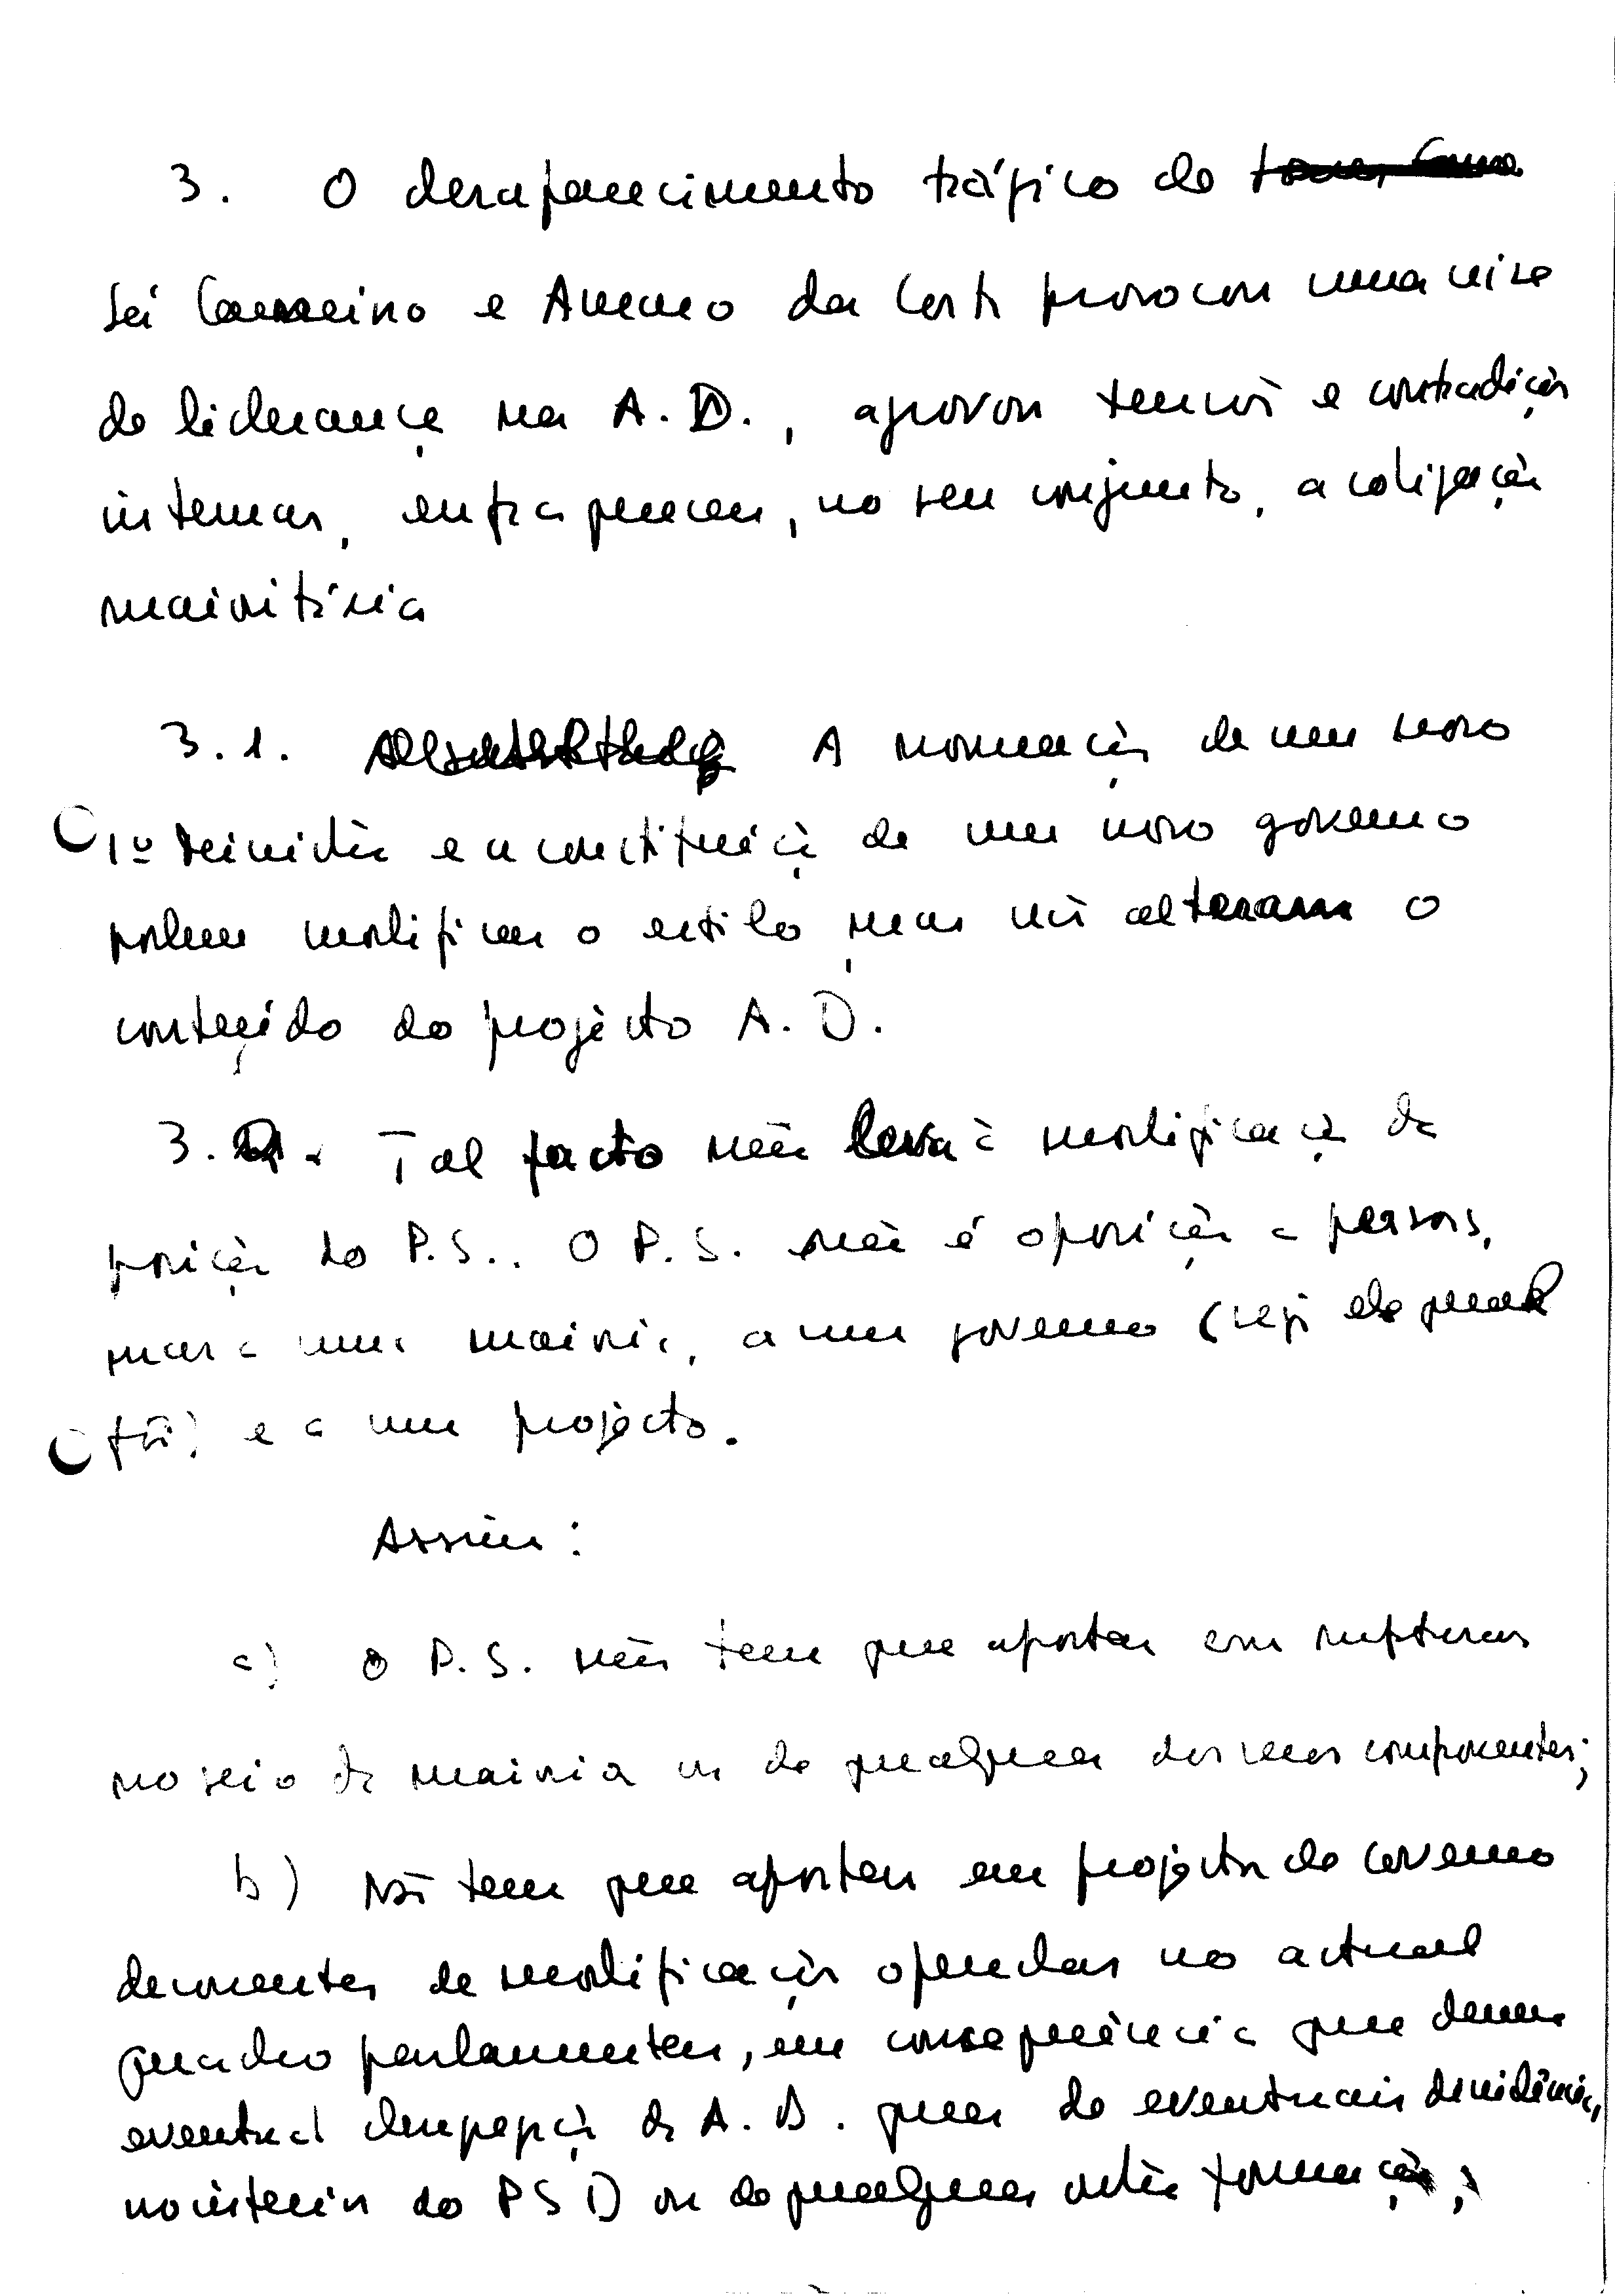 3. O desaparecimento trágico de
Sá Carneiro e Amaro da Costa provocou uma crise
de liderança na A.D., agravou tensões e contradições
internas, enfraqueceu, no seu conjunto, a coligação
maioritária
3.1. A nomeação de um novo
1º Ministro e a constituição de um novo governo
podem modificar o estilo, mas não alteram o
conteúdo do projecto A.D.
3.2. Tal facto não leva à modificação da
posição do P.S.. O P.S. não é oposição a pessoas,
mas a uma maioria, a um governo (seja ele qual
for) e a um projecto.
Assim:
a) O P.S. não tem que apostar em rupturas
no seio da maioria ou de qualquer dos seus componentes;
b) Não tem que apostar em projectos de Governo
decorrentes de modificações operadas no actual
quadro parlamentar, em consequência quer duma
eventual desagregação da A.D. quer de eventuais dissidências,
no interior do PSD ou de qualquer outra formação;